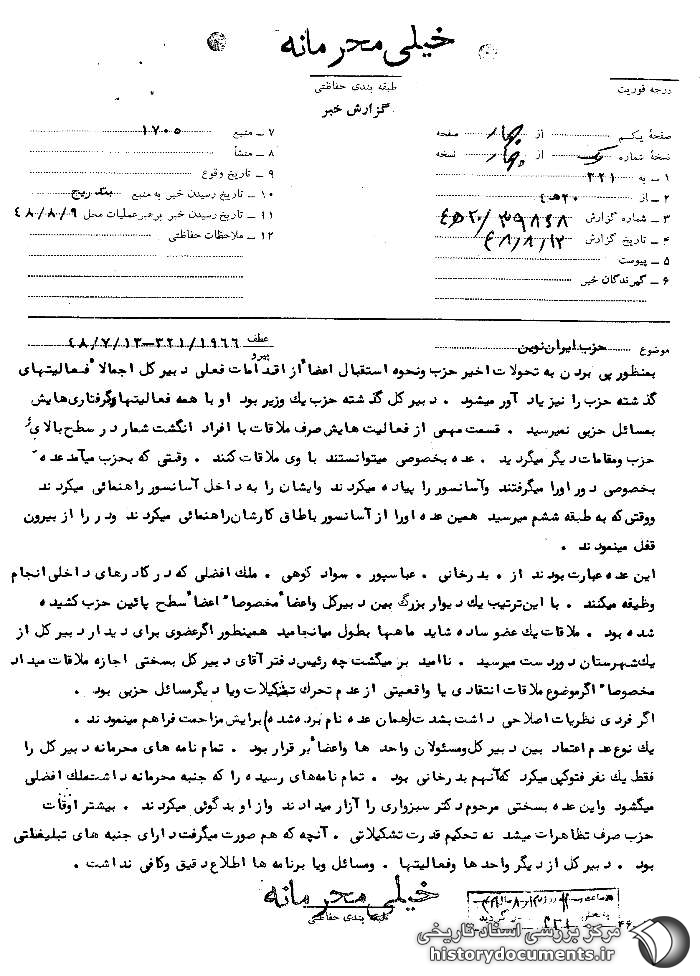 خیلی محرمانه
طبقه بندی حفاظتی
درجه فوریت
گزارش خبر
صفحهٔ یکم از چهار صفحه
نسخهٔ شماره یک از چهار نسخه
۱ ــ به ۳۲۱
۲ ــ از ۲۰هـ۴
۳ ــ شماره گزارش
۴ ــ تاریخ گزارش ۴۸/۸/۱۲
۵ ــ پیوست
۶ ــ گیرندگان خبر
۷ ــ منبع ۱۷۰۵
۸ ــ منشأ
۹ ــ تاریخ وقوع
۱۰ ــ تاریخ رسیدن خبر به منبع بتدریج
۱۱ ــ تاریخ رسیدن خبر برهبرعملیات محل ۴۸/۸/۹
۱۲ ــ ملاحظات حفاظتی
موضوع حزب ایران نوین
عطف پیرو ۳۲۱/۱۹۶۶-۴۸/۷/۱۳
بمنظور پی بردن به تحولات اخیر حزب ونحوه استقبال اعضاء از اقدامات فعلی دبیر کل اجمالاً فعالیتهای
گذشته حزب را نیز یاد آور میشود . دبیر کل گذشته حزب یك وزیر بود او با همه فعالیتها وگرفتاری هایش
بمسائل حزبی نمیرسید . قسمت مهمی از فعالیت هایش صرف ملاقات با افراد انگشت شمار در سطح بالای
حزب ومقامات دیگر میگردید . عده بخصوصی میتوانستند با وی ملاقات کنند . وقتی که بحزب میآمد عده
بخصوصی دور اورا میگرفتند وآسانسور را پیاده میکردند وایشان را به داخل آسانسور راهنمائی میکردند
ووقتی که به طبقه ششم میرسید همین عده اورا از آسانسور باطاق کارشان راهنمائی میکردند ودر را از بیرون
قفل مینمودند .
این عده عبارت بودند از . بدرخانی . عباسپور . سواد کوهی . ملك افضلی که در کادرهای داخلی انجام
وظیفه میکنند . با این ترتیب یك دیوار بزرگ بین دبیرکل واعضاء مخصوصاً اعضاء سطح پائین حزب کشیده
شده بود . ملاقات یك عضو ساده شاید ماهها بطول میانجامید همینطور اگرعضوی برای دیدار دبیر کل از
یك شهرستان دوردست میرسید . ناامید بر میگشت چه رئیس دفتر آقای دبیر کل بسختی اجازه ملاقات میداد
مخصوصاً اگرموضوع ملاقات انتقادی یا واقعیتی از عدم تحرك تشکیلات ویا دیگر مسائل حزبی بود .
اگر فردی نظریات اصلاحی داشت بشدت (همان عده نام برده شده) برایش مزاحمت فراهم مینمودند .
یك نوع عدم اعتماد بین دبیر کل ومسئولان واحد ها واعضاء بر قرار بود . تمام نامه های محرمانه دبیر کل را
فقط یك نفر فتوکپی میکرد که آنهم بدرخانی بود . تمام نامه های رسیده را که جنبه محرمانه داشت ملك افضلی
میگشود واین عده بسختی مرحوم دکتر سبزواری را آزار میدادند واز او بدگوئی میکردند . بیشتر اوقات
حزب صرف تظاهرات میشد نه تحکیم قدرت تشکیلاتی . آنچه که هم صورت میگرفت دارای جنبه های تبلیغاتی
بود . دبیر کل از دیگر واحدها وفعالیتها . ومسائل ویا برنامه ها اطلاع دقیق وکافی نداشت .
خیلی محرمانه
طبقه بندی حفاظتی
مرکز بررسی اسناد تاریخی
historydocuments.ir